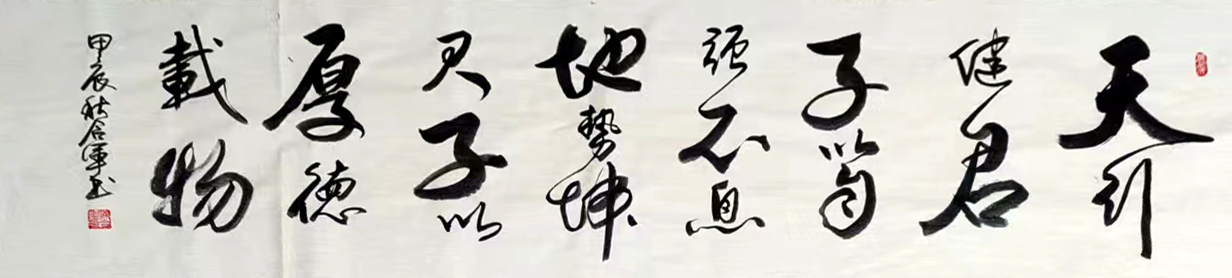 天行
健君
子以自
强不息
地势坤
君子以
厚德
載物
甲辰秋合軍书